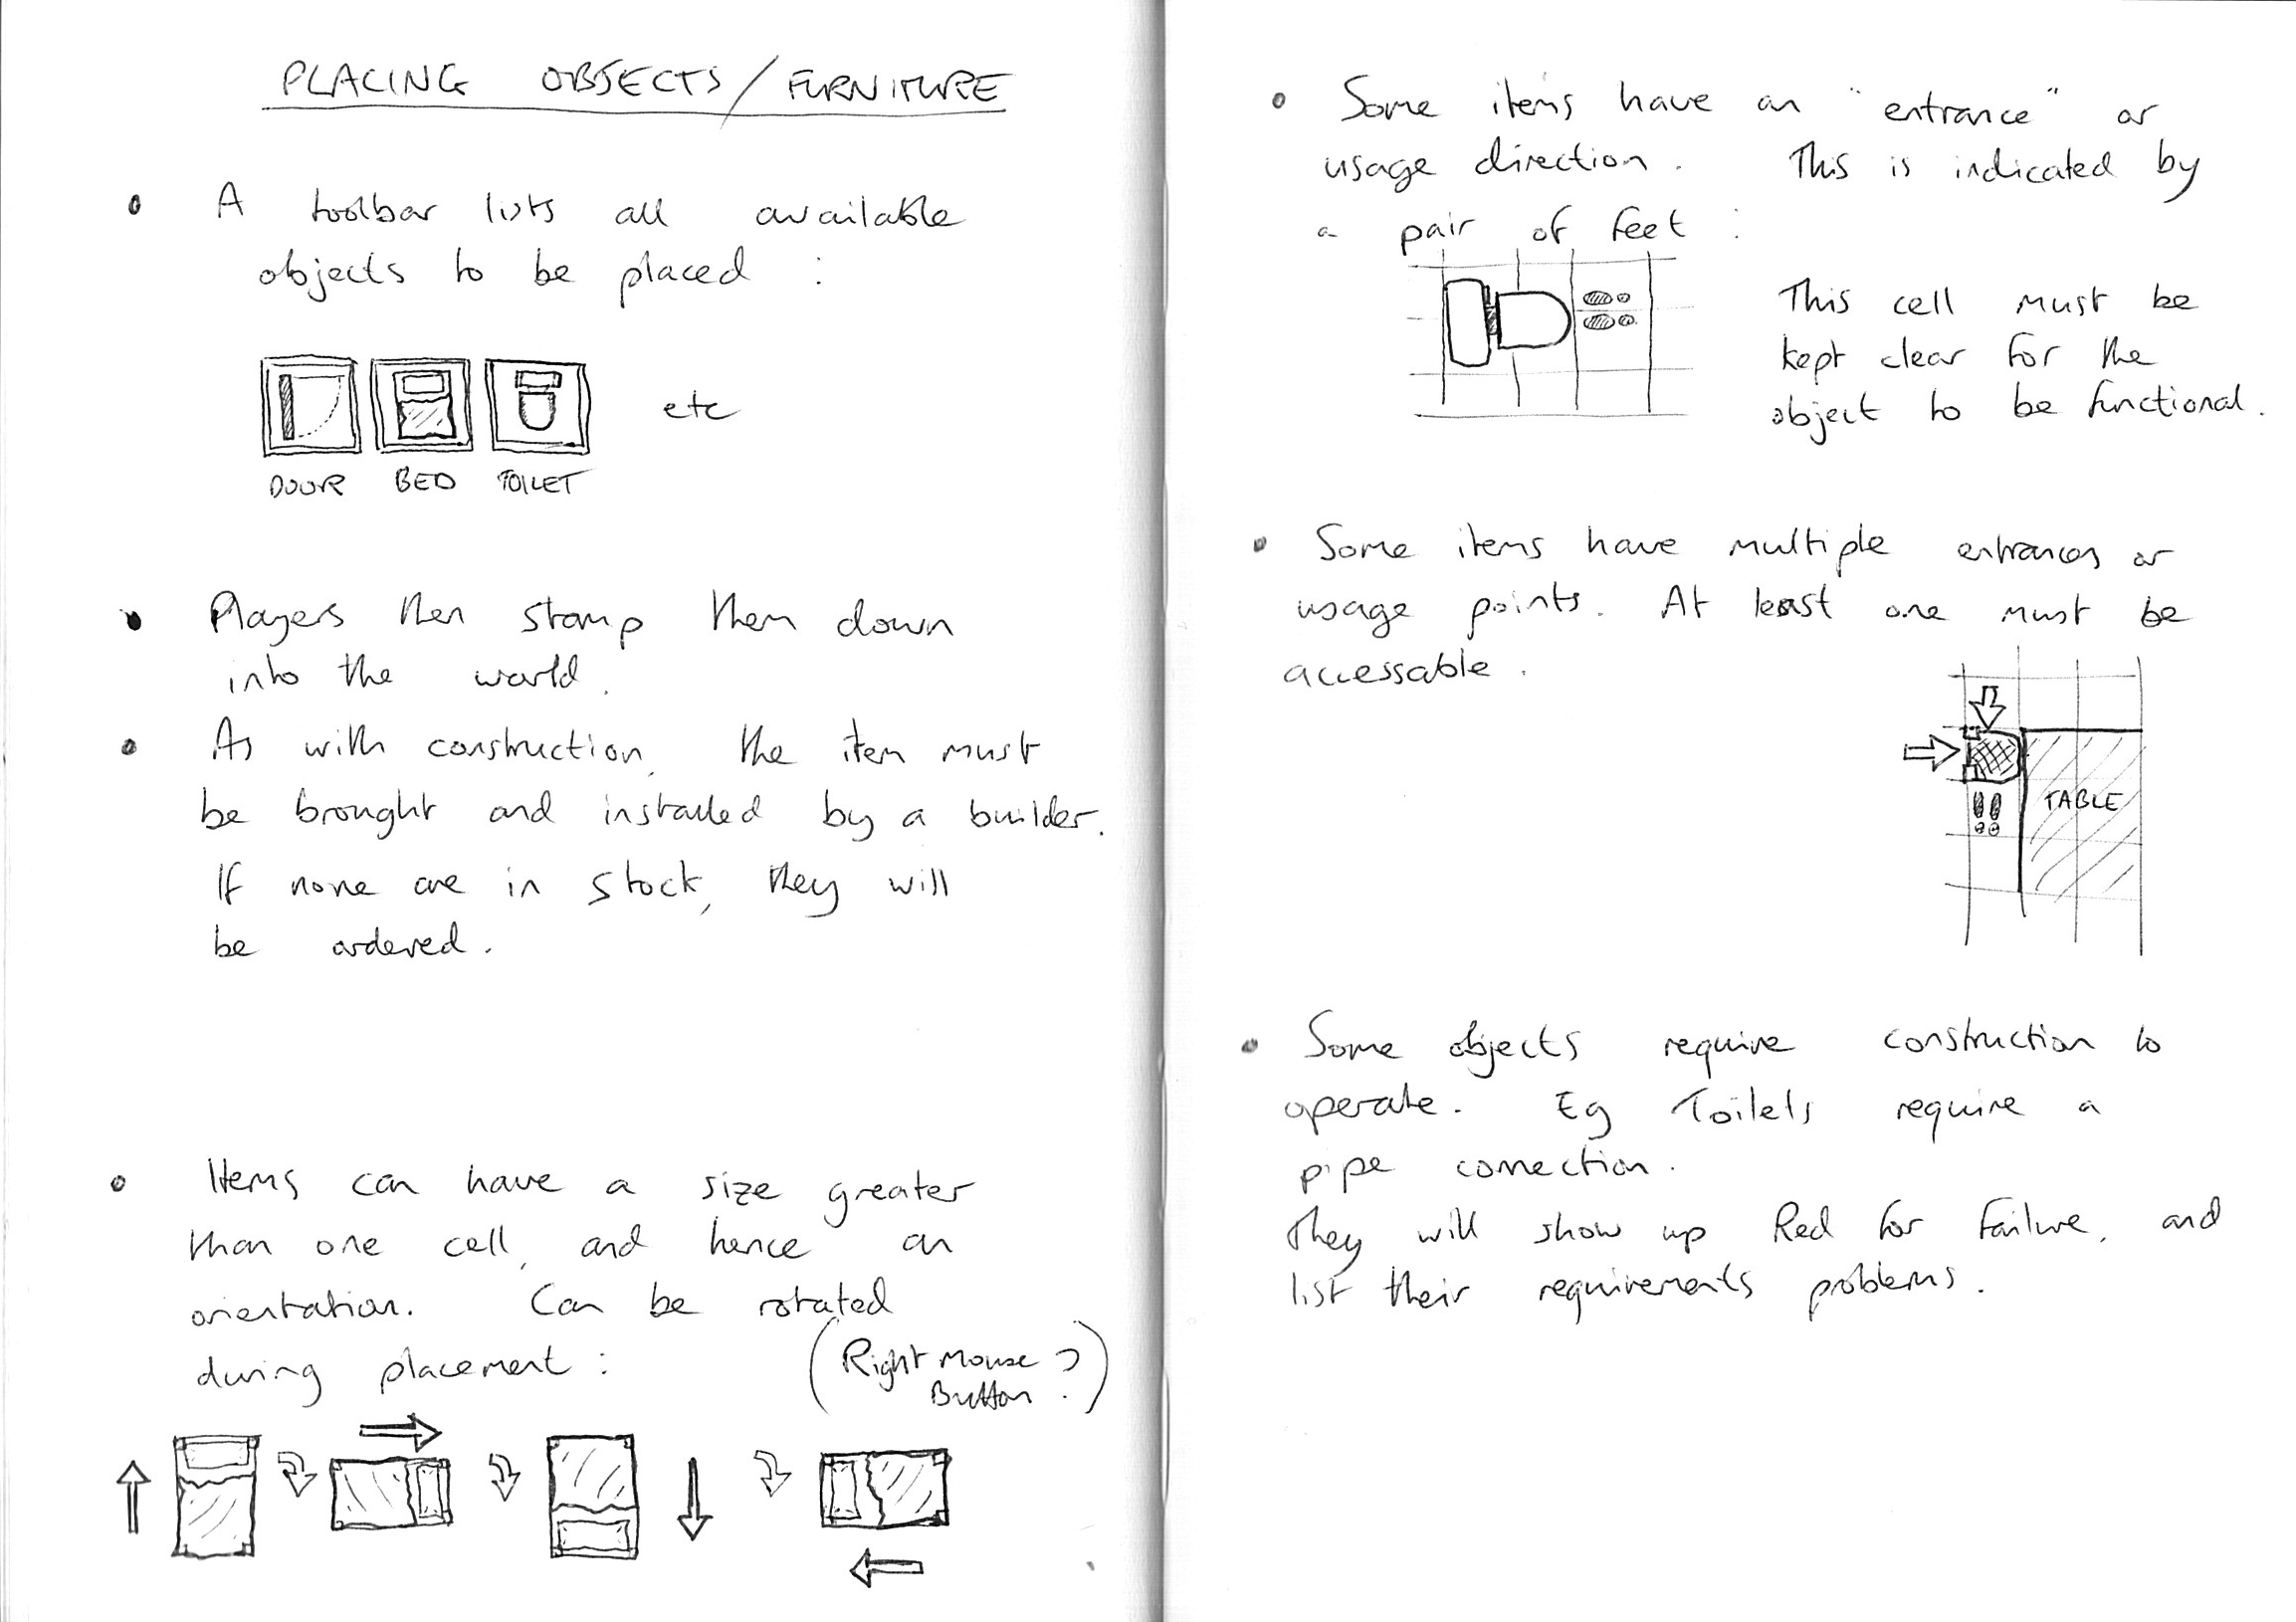 PLACING OBJECTS / FURNITURE
• A toolbar lists all available
objects to be placed :
etc
DOOR BED TOILET
• Players then stamp them down
into the world.
• As with construction, the item must
be brought and installed by a builder.
If none are in stock, they will
be ordered.
• Items can have a size greater
than one cell, and hence an
orientation. Can be rotated
during placement :
(Right Mouse
Button ?)
• Some items have an "entrance" or
usage direction. This is indicated by
a pair of feet :
This cell must be
kept clear for the
object to be functional.
• Some items have multiple entrances or
usage points. At least one must be
accessable.
TABLE
• Some objects require construction to
operate. Eg Toilets require a
pipe connection.
They will show up Red for failure, and
list their requirements problems.